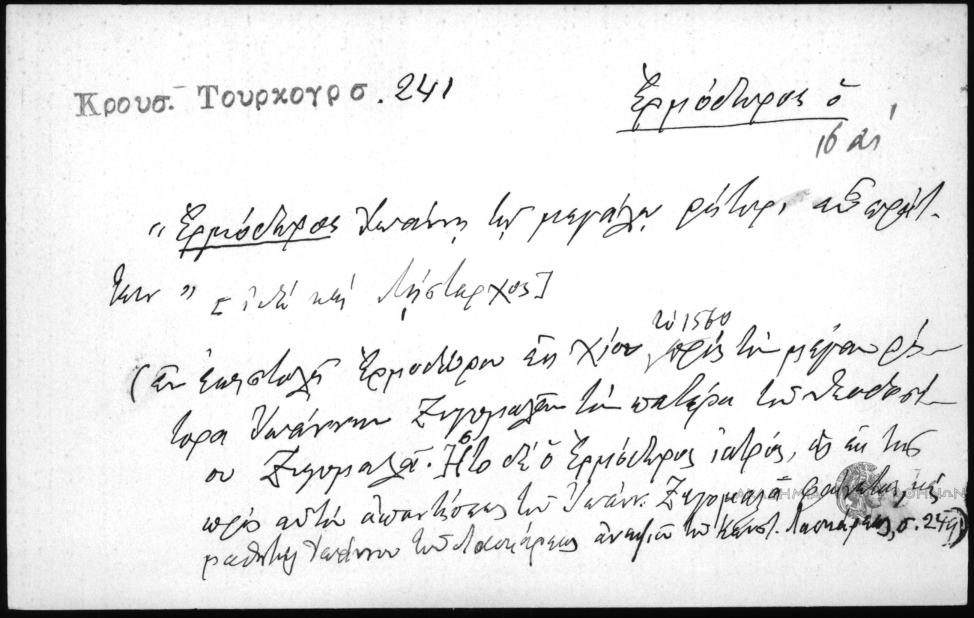 Κρουσ. Τουρκογρ σ. 241
Ἑρμόδωρος ὁ
"Ἑρμόδωρος Ἰωάννῃ τῷ μεγάλῳ ῥήτορι εὖ πράτ-
τειν" [ἰδὲ καὶ Λήσταρχος]
(ἐν ἐπιστολῇ Ἑρμοδώρου ἐκ Χίου τῷ 1560 πρὸς τὸν μέγαν ῥή-
τορα Ἰωάννην Ζυγομαλᾶν τὸν πατέρα τοῦ Θεοδοσί-
ου Ζυγομαλᾶ. Ἦτο δὲ ὁ Ἑρμόδωρος ἰατρός, ὡς ἐκ τῆς
πρὸς αὐτὸν ἀπαντήσεως τοῦ Ἰωάν. Ζυγομαλᾶ φαίνεται, καὶ
μαθητὴς Ἰωάννου τοῦ Λασκάρεως ἀνεψιοῦ τοῦ Κωνστ. Λασκάρεως, σ. 249)